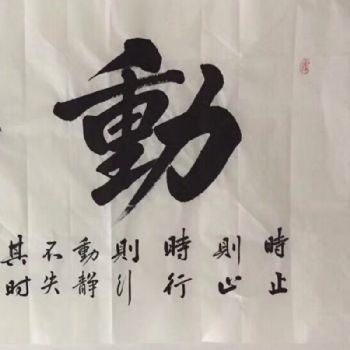 動
時止
則止
時行
則行
動静
不失
其时